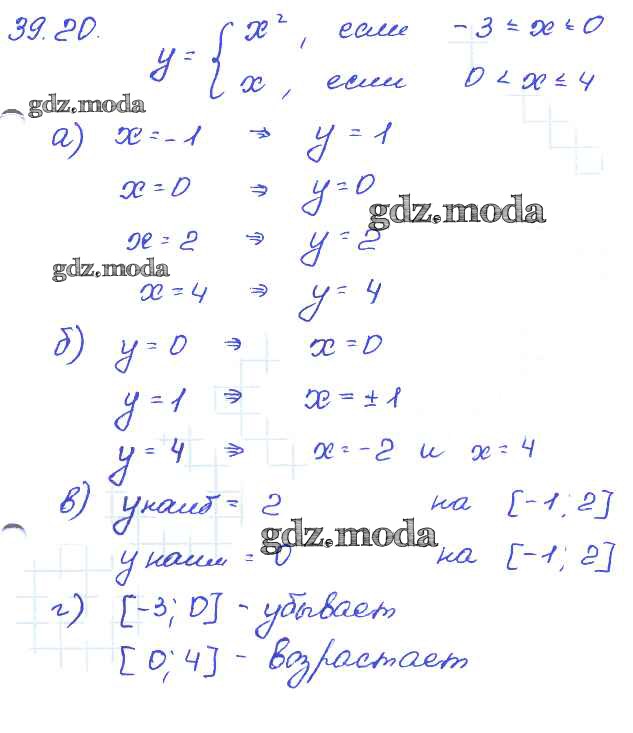 39.20.
y = { x², если -3 ≤ x ≤ 0
x, если 0 < x ≤ 4
gdz.moda
а) x = -1 ⇒ y = 1
x = 0 ⇒ y = 0
gdz.moda
x = 2 ⇒ y = 2
gdz.moda
x = 4 ⇒ y = 4
б) y = 0 ⇒ x = 0
y = 1 ⇒ x = ± 1
y = 4 ⇒ x = -2 и x = 4
в) y наиб = 2 на [-1; 2]
gdz.moda
y наим = 0 на [-1; 2]
г) [-3; 0] - убывает
[0; 4] - возрастает